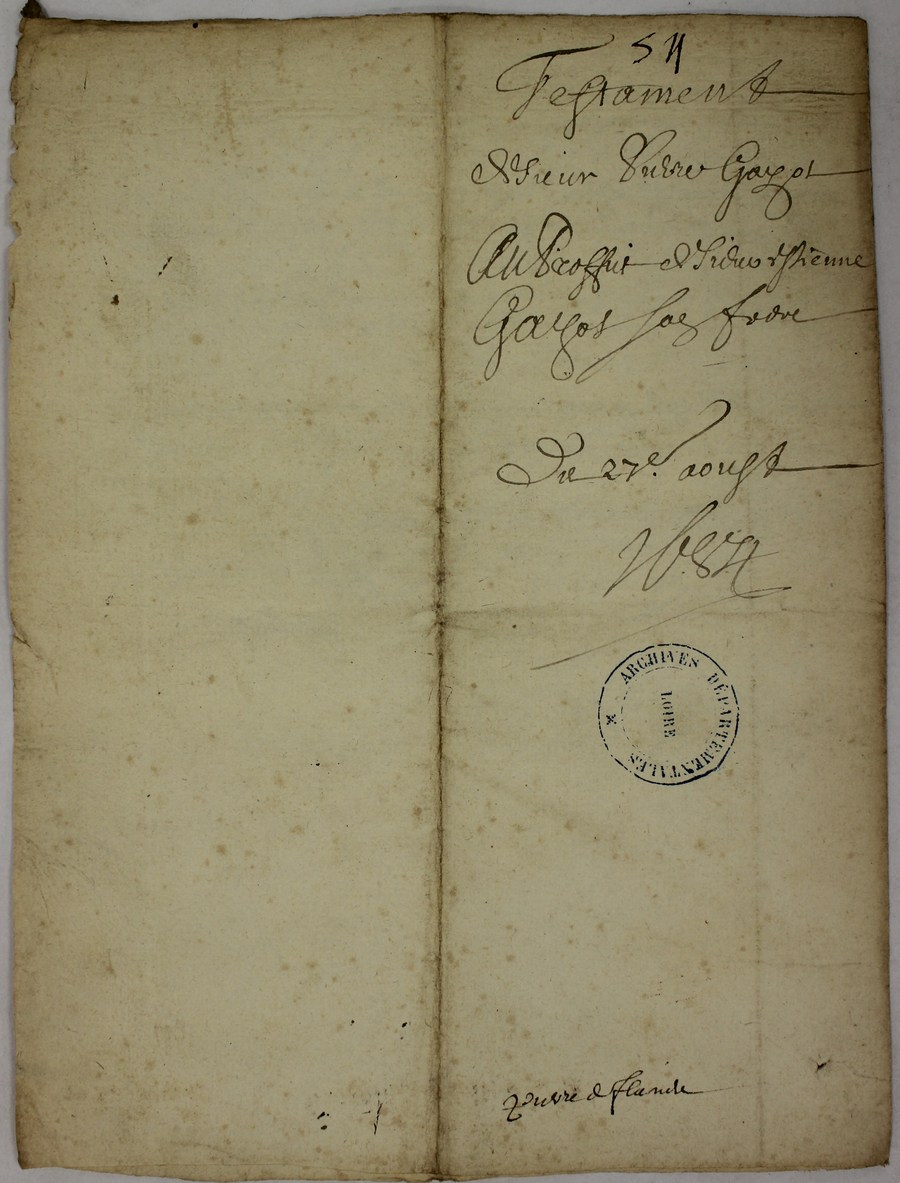 54
Testament
de sieur Pierre Gayot
Au Proffit de sieur estienne
Gayot son frere
Du 27e. aoust
1684
ARCHIVES DÉPARTEMENTALES
LOIRE
pierre de flande